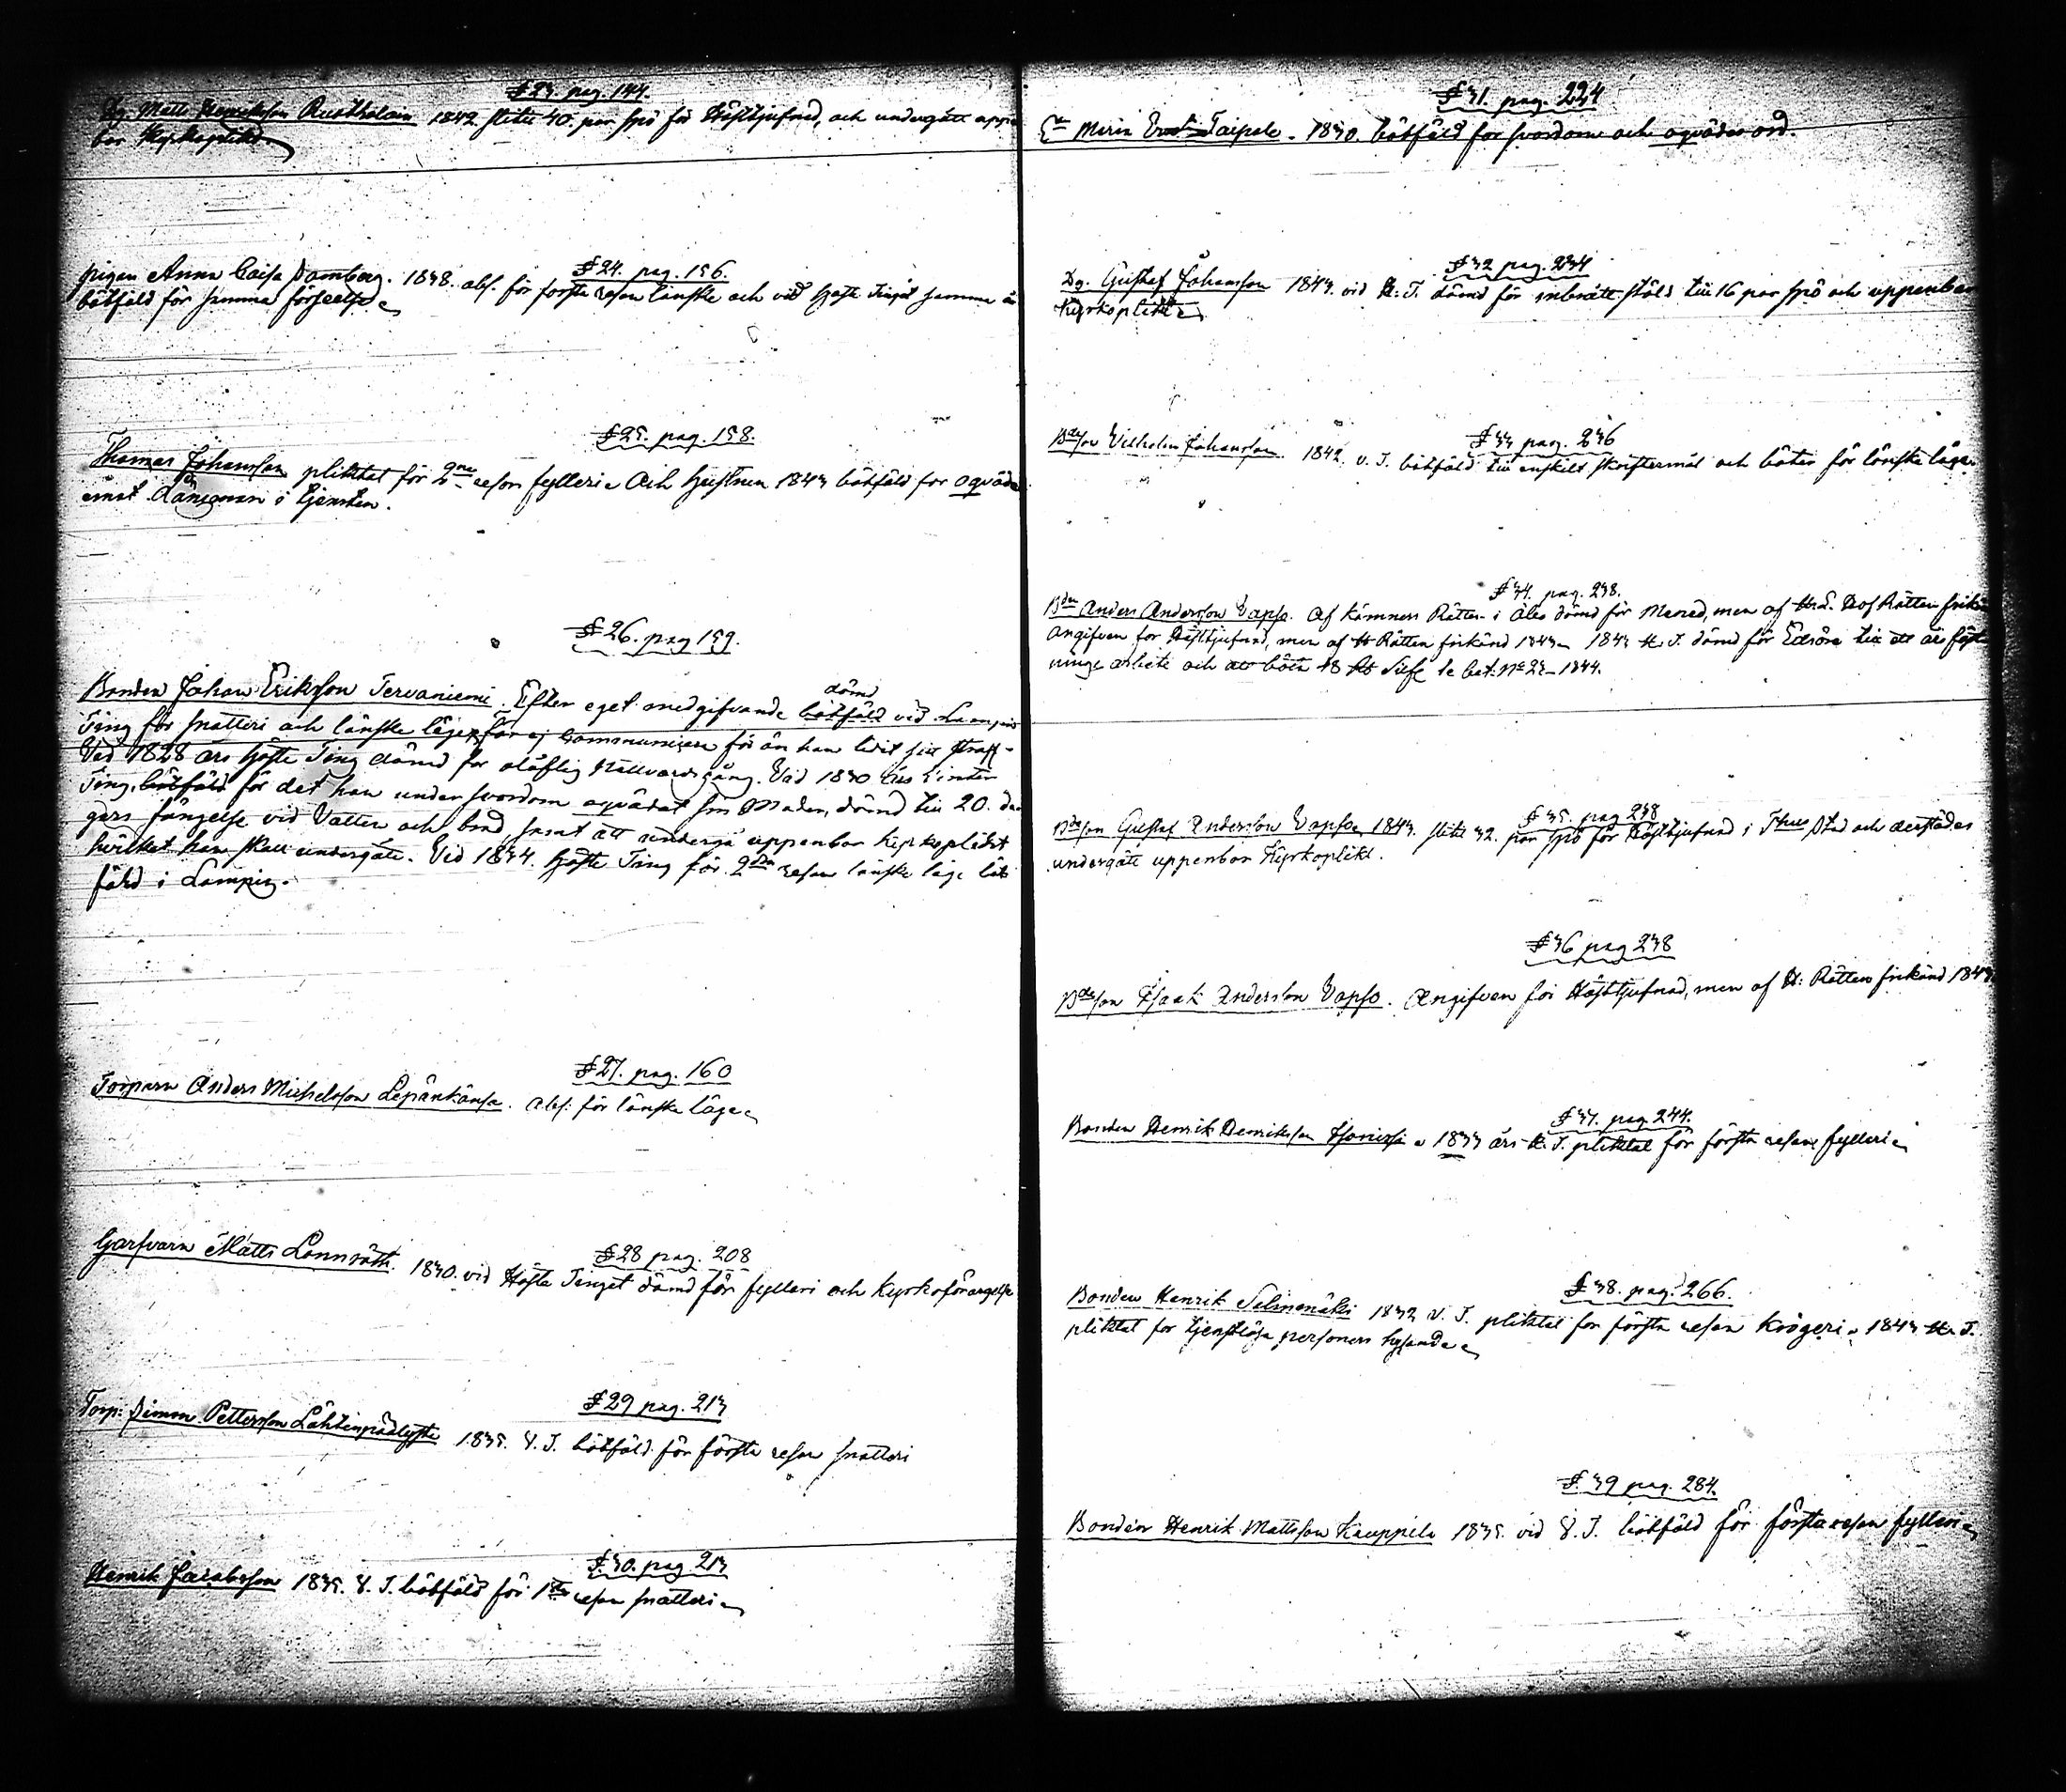 § 23. pag. 144.
Dg. Matts Henriksson Rusthola 1842. slitit 40. par spö för Hästtjufnad, och undergått uppen
bar Kyrkoplikt
§ 24. pag. 156.
pigan Anna Caisa Damberg. 1838. abs. för första resan lönske och vid Höste Tinget samma år
bötfäld för samma förseelse
§ 25. pag. 158.
Thomas Johansson pliktat för 2ne resor fylleri och Hustrun 1843 bötfäld for oqväde
emot Länsman i tjensten.
§ 26. pag 159.
Bonden Johan Eriksson Tervaniemi. Efter eget medgifvande bötfäld dömd vid Lampis
Ting för snatteri och lönske läge, får ej communicera för än han lidit sitt straff -
Vid 1828 års Höste Ting dömd for olåflig Nattvardsgång. Vid 1830 års Vinter
Ting, bötfäld för det han under svordom oqvädat sin Moder, dömd till 20. da
gars fängelse vid Vatten och bröd, samt att undergå uppenbar kyrkoplikt
hvilket han skall undergått. Vid 1834. Höste Ting för 2dra resan lönske läge böt
fäld i Lampis.
§ 27. pag. 160
Torparn Anders Michelsson Lepänkänsä. abs: för lönske läge
§ 28 pag. 208
Garfvarn Matts Lönnroth. 1830. vid Höste Tinget dömd för fylleri och Kyrkoförargelse
§ 29 pag. 213
Torp: Simon Pettersson Lähtenpää 1835. V. T. bötfäld för första resan snatteri
§ 30. pag 213
Henrik Jacobsson 1835. V. T. bötfäld för 1sta resan snatteri
§ 31. pag. 224
En Maria Taipale. 1830. bötfäld for svordom och oqvädes ord.
§ 32 pag. 234
Dg. Gustaf Johansson 1843. vid H. T. dömd för inbrotts stöld till 16 par spö och uppenbar
Kyrkoplikt
§ 33 pag. 236
Bdeson Vilhelm Johansson. 1842. V. T. bötfäld till enskilt skriftermål och böter för lönske läge.
§ 34. pag. 238.
Bden Anders Andersson Vapso. Af Kämners Rätten i Åbo dömd för Mened, men af Hof Rätten frikänd
Angifven for Hästtjufnad, men af H Rätten frikänd 1843 - 1843 H. T. dömd för Edsöre till ett års fäst
nings arbete och att böta 48 Silf. se bet: No 23 - 1844.
§ 35. pag 238
Bdeson Gustaf Andersson Vapso 1843. slitit 32. par spö för Hästtjufnad i Thus Stad och derstädes
undergått uppenbar Kyrkoplikt.
§ 36 pag 238
Bdeson Isaak Andersson Vapso. Angifven för Hästtjufnad, men af H: Rätten frikänd 1843.
§ 37. pag. 244.
Bonden Henrik Henriksson 1833 års H. T. pliktat för första resan fylleri
§ 38. pag. 266.
Bonden Henrik Selmenäki 1832 V. T. pliktat for första resan Krögeri. 1843 H. T.
pliktat for tjenstlösa personers hysande
§ 39 pag. 284.
Bonden Henrik Mattsson Kauppila 1835. vid V. T. bötfäld för första resan fylleri